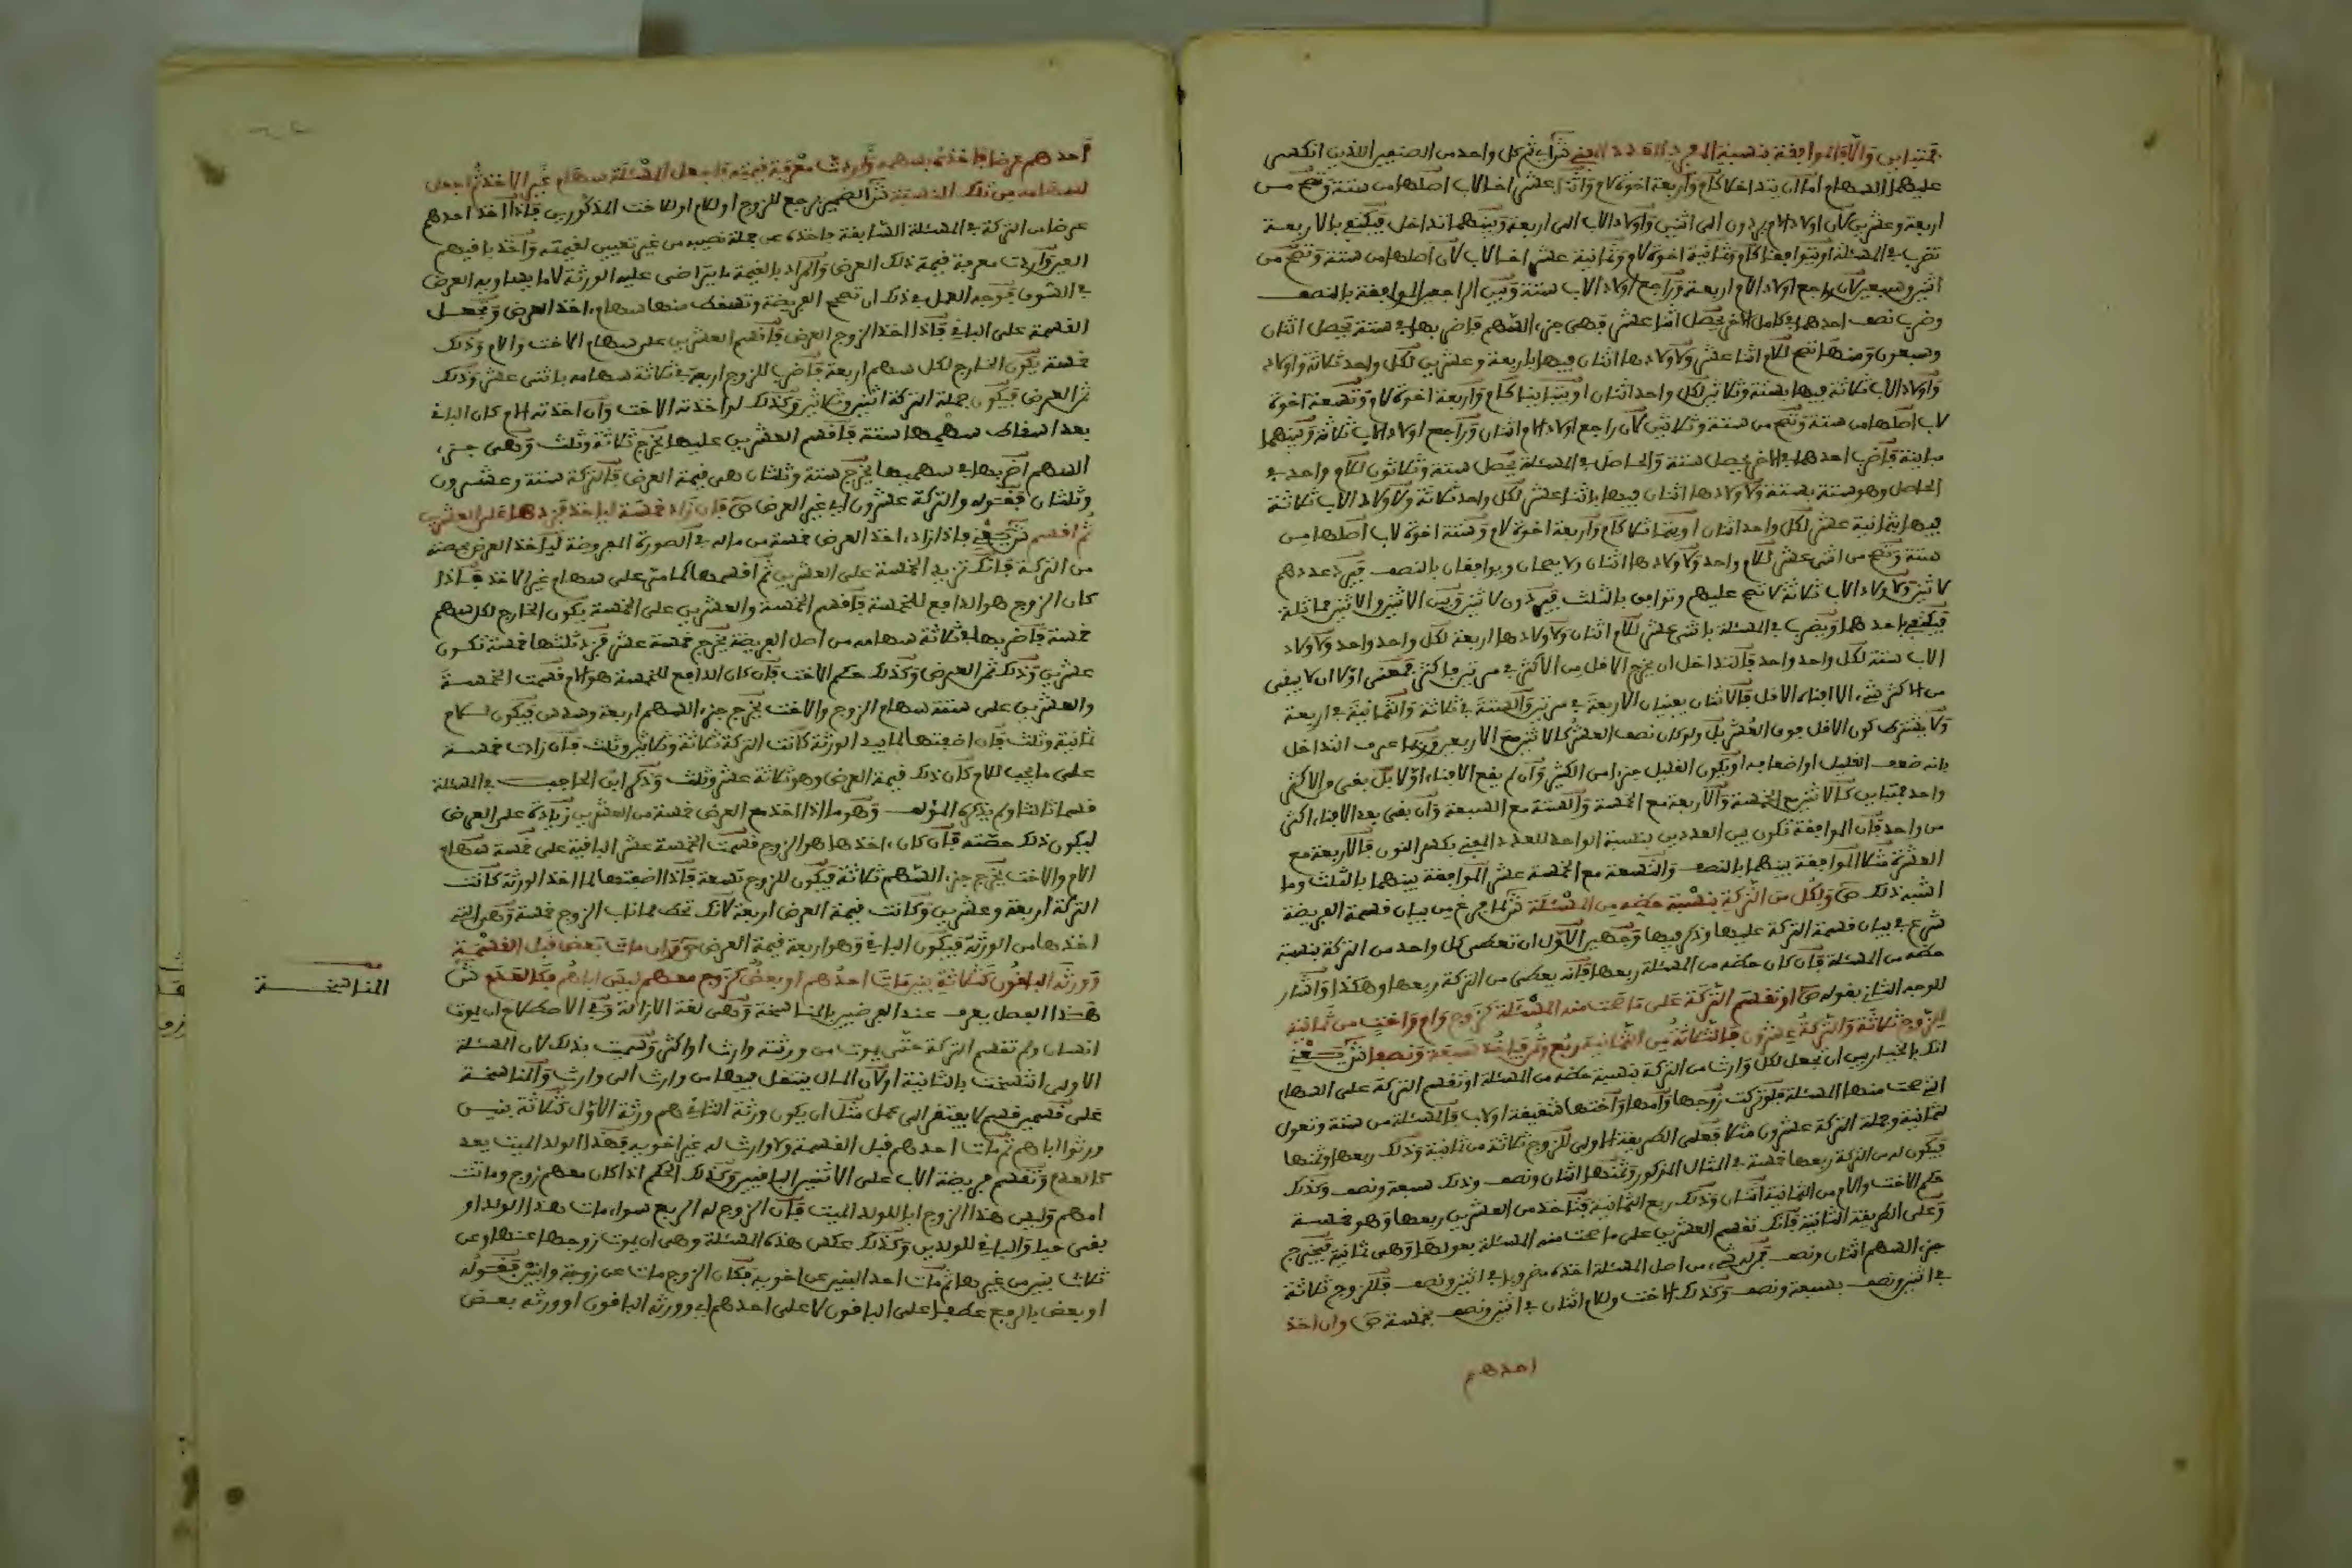 فمتباين والا فالموافقة بنسبة المفرد للعدد المفني ش أي ثم كل واحد من الصنفين اللذين انكسرت
عليهما السهام اما ان يتداخلا كام واربعة اخوة لام واثنا عشر اخا لاب اصلها من ستة وتصح من
اربعة وعشرين لان اولاد الام يردون الى اثنين واولاد الاب الى اربعة وبينهما تداخل فيكتفى بالاربعة
تضرب في المسئلة او يتوافقا كام وثمانية اخوة لام وثمانية عشر اخا لاب لان اصلها من ستة وتصح من
اثنين وسبعين لان راجع اولاد الام اربعة وراجع اولاد الاب ستة وبين الراجعين الموافقة بالنصف
وضرب نصف احدهما في كامل الاخر يحصل اثنا عشر فهي جزء السهم فاضربها في ستة يحصل اثنان
وسبعون ومنها تصح للام اثنا عشر ولاولادها اثنان فيها باربعة وعشرين لكل واحد ثلاثة واولاد
واولاد الاب ثلاثة فيها بستة وثلاثين لكل واحد اثنان او يتباينا كام واربعة اخوة لام وتسعة اخوة
لاب اصلها من ستة وتصح من ستة وثلاثين لان راجع اولاد الام اثنان وراجع اولاد الاب ثلاثة وبينهما
مباينة فاضرب احدهما في الاخر يحصل ستة والحاصل في المسئلة يحصل ستة وثلاثون للام واحد في
الحاصل وهو ستة بستة ولاولادها اثنان فيها باثنا عشر لكل واحد ثلاثة ولاولاد الاب ثلاثة
فيها بثمانية عشر لكل واحد اثنان او يتماثلا كام واربعة اخوة لام وستة اخوة لاب اصلها من
ستة وتصح من اثنى عشر للام واحد ولاولادها اثنان ولا يصحان ويوافقان بالنصف فيرد عددهم
لاثنين ولاولاد الاب ثلاثة لا تصح عليهم وتوافق بالثلث فيردون لاثنين وبين الاثنين والاثنين مماثلة
فيكتفى باحدهما ويضرب في المسئلة باثنى عشر للام اثنان ولاولادها اربعة لكل واحد واحد ولاولاد
الاب ستة لكل واحد واحد فالتداخل ان يخرج الاقل من الاكثر في مرتين فاكثر فمعنى اولا ان لا يبقى
من الاكثر شيء الا افناء الاقل فالاثنان يفنيان الاربعة في مرتين والستة في ثلاثة والثمانية في اربعة
ولا يشترط كون الاقل جزء العشر بل ولو كان نصف العشر كالاثنين مع الاربعين وربما عرف التداخل
بانه ضعف القليل او اضعافه او يكون القليل جزءا من الكثير وان لم يقع الافناء اولا بل بقي من الاكثر
واحد فمتباين كالاثنين مع الخمسة والاربعة مع الخمسة والستة مع السبعة وان بقي بعد الافناء اكثر
من واحد فان الموافقة تكون بين العددين بنسبة الواحد للعدد المفني بكسر النون فالاربعة مع
العشرة مثلا الموافقة بينهما بالنصف والتسعة مع الخمسة عشر الموافقة بينهما بالثلث وما
اشبه ذلك ص ولكل من التركة بنسبة حظه من المسئلة ش لما فرغ من بيان قسمة الفريضة
شرع في بيان قسمة التركة عليها وذكر فيها وجهين الاول ان تعطي كل واحد من التركة بنسبة
حظه من المسئلة فان كان حظه من المسئلة ربعها فانه يعطى من التركة ربعها وهكذا واشار
للوجه الثاني بقوله ص او تقسم التركة على ما صحت منه المسئلة كزوج وام واخت من ثمانية
للزوج ثلاثة والتركة عشرون فالثلاثة من الثمانية ربع وثمن فياخذ سبعة ونصفا ش يعني
انك بالخيار بين ان تجعل لكل وارث من التركة بنسبة حظه من المسئلة او تقسم التركة على السهام
التي صحت منها المسئلة فلو تركت زوجها وامها واختها شقيقة او لاب فالمسئلة من ستة وتعول
لثمانية وجملة التركة عشرون مثلا فعلى الطريقة الاولى للزوج ثلاثة من ثمانية وذلك ربعها وثمنها
فيكون له من التركة ربعها خمسة في المثال المذكور وثمنها اثنان ونصف وذلك سبعة ونصف وكذلك
حكم الاخت والام من الثمانية اثنان وذلك ربع الثمانية فتاخذ من العشرين ربعها وهو خمسة
وعلى الطريقة الثانية فانك تقسم العشرين على ما صحت منه المسئلة بعولها وهي ثمانية فيخرج
جزء السهم اثنان ونصف فمن له شيء من اصل المسئلة اخذه مضروبا في اثنين ونصف فللزوج ثلاثة
في اثنين ونصف بسبعة ونصف وكذلك الاخت وللام اثنان في اثنين ونصف بخمسة ص وان اخذ
احدهم
احدهم عرضا فاخذه بسهمه واردت معرفة قيمته فاجعل المسئلة سهام غير الاخذ ثم اجعل
لسهامه من تلك النسبة ش الضمير يرجع للزوج او للام او للاخت المذكورين فاذا اخذ احدهم
عرضا من التركة في المسئلة السابقة فاخذه عن جملة نصيبه من غير تعيين لقيمته واخذ باقيهم
العين واردت معرفة قيمة ذلك العرض والمراد بالقيمة ما يتراضى عليه الورثة لا ما يساويه العرض
في السوق فوجه العمل في ذلك ان تصحح الفريضة وتسقط منها سهام اخذ العرض وتجعل
القسمة على الباقي فاذا اخذ الزوج العرض فاقسم العشرين على سهام الاخت والام وذلك
خمسة يكون الخارج لكل سهم اربعة فاضرب للزوج اربعة في ثلاثة سهامه باثنى عشر وذلك
ثمن العرض فيكون جملة التركة اثنين وثلاثين وكذلك لو اخذته الاخت وان اخذته الام كان الباقي
بعد اسقاط سهمها ستة فاقسم العشرين عليها يخرج ثلاثة وثلث وهي جزء
السهم اضربها في سهميها يخرج ستة وثلثان هي قيمة العرض فالتركة ستة وعشرون
وثلثان فقوله والتركة عشرون اي غير العرض ص فان زاد خمسة لياخذ فزدها على العشرين
ثم اقسم ش يعني فاذا زاد اخذ العرض خمسة من ماله في الصورة المفروضة لياخذ العرض بحصته
من التركة فانك تزيد الخمسة على العشرين ثم اقسمها كما مر على سهام غير الاخذ فاذا
كان الزوج هو الدافع للخمسة فاقسم الخمسة والعشرين على الخمسة يكون الخارج لكل سهم
خمسة فاضربها في ثلاثة سهامه من اصل الفريضة يخرج خمسة عشر فزد ثلثها خمسة تكون
عشرين وذلك ثمن العرض وكذلك حكم الاخت فان كان الدافع للخمسة هو الام قسمت الخمسة
والعشرين على ستة سهام الزوج والاخت يخرج جزء السهم اربعة وسدس فيكون للام
ثمانية وثلث فان اضفتها لما بيد الورثة كانت التركة ثلاثة وثلاثين وثلث فان زادت خمسة
على ما يجب للام كان ذلك قيمة العرض وهو ثلاثة عشر وثلث وذكر ابن الحاجب في المسئلة
قسما ثالثا ولم يذكره المؤلف وهو ما اذا اخذ مع العرض خمسة من العشرين زيادة على العرض
ليكون ذلك حصته فان كان اخذها هو الزوج قسمت الخمسة عشر الباقية على خمسة سهام
الام والاخت يخرج جزء السهم ثلاثة فيكون للزوج تسعة فاذا اضفتها لما اخذ الورثة كانت
التركة اربعة وعشرين وكانت قيمة العرض اربعة لانك تحط مما ناب الزوج خمسة وهي التي
اخذها من الورثة فيكون الباقي وهو اربعة قيمة العرض ص وان مات بعض قبل القسمة
وورثه الباقون كثلاثة بنين مات احدهم او بعض كزوج معهم ليس اباهم فكالعدم ش
هذا الفصل يعرف عند الفرضيين بالمناسخة وهي لغة الازالة وفي الاصطلاح ان يموت
انسان ولم تقسم التركة حتى يموت من ورثته وارث او اكثر وسميت بذلك لان المسئلة
الاولى انتسخت بالثانية او لان المال ينتقل فيها من وارث الى وارث والمناسخة
على قسمين قسم لا يفتقر الى عمل مثل ان يكون ورثة الثاني هم ورثة الاول كثلاثة بنين
ورثوا اباهم ثم مات احدهم قبل القسمة ولا وارث له غير اخويه فهذا الولد الميت يعد
كالعدم وتقسم فريضة الاب على الاثنين الباقيين وكذلك الحكم اذا كان معهم زوج وماتت
امهم وليس هذا الزوج ابا للولد الميت فان الزوج له الربع سواء مات هذا الولد او
بقى حيا والباقي للولدين وكذلك عكس هذه المسئلة وهي ان يموت زوجها عنها وعن
ثلاث بنين من غيرها ثم مات احد البنين عن اخويه فكان الزوج مات عن زوجة وابنين فقوله
او بعض بالرفع عطفا على الباقون لا على احدهم اي وورثه الباقون او ورثه بعض
المناسخة